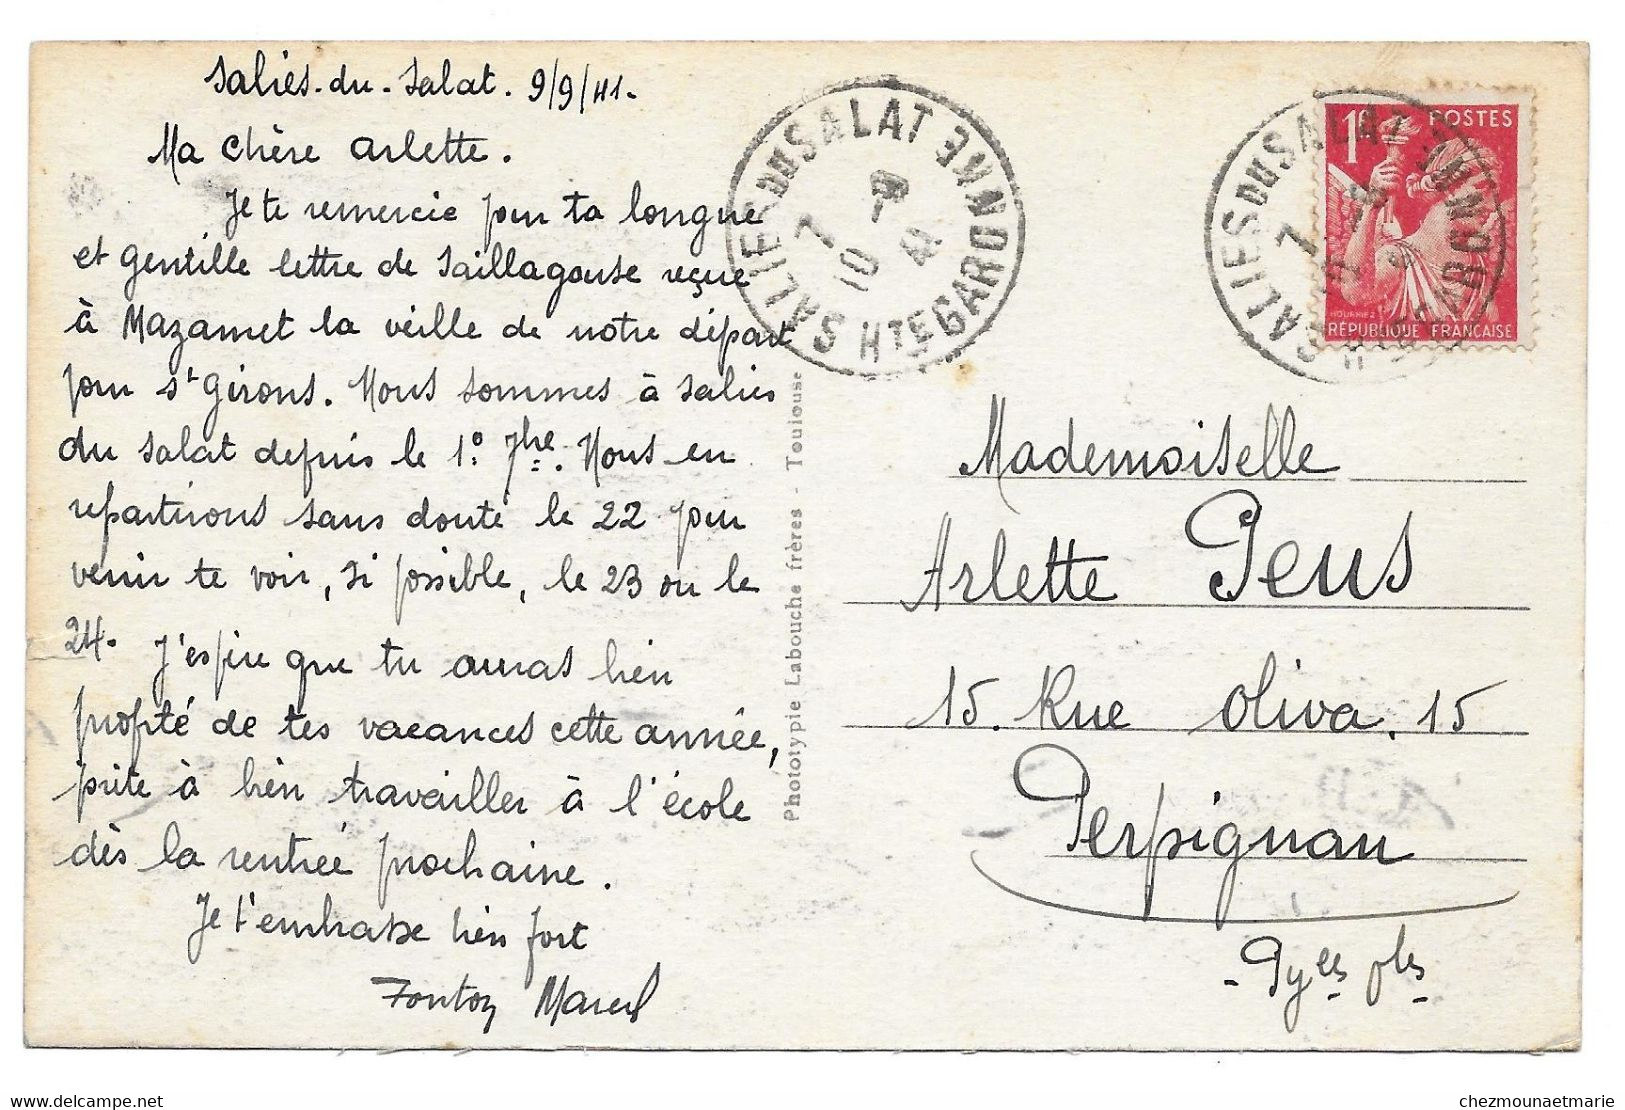 Salies-du-Salat. 9/9/41.
Ma chère Arlette.
Je te remercie pour ta longue
et gentille lettre de Saillagouse reçue
à Mazamet la veille de notre départ
pour St Girons. Nous sommes à Salies
du Salat depuis le 1° 7bre. Nous en
repartirons sans doute le 22 pour
venir te voir, si possible, le 23 ou le
24. J'espère que tu auras bien
profité de tes vacances cette année,
prête à bien travailler à l'école
dès la rentrée prochaine.
Je t'embrasse bien fort
Marcel
Phototypie Labouche frères - Toulouse
SALIES DU SALAT HTE GARONNE
7 10 -9 41
SALIES DU SALAT
1F POSTES
HOURRIEZ
RÉPUBLIQUE FRANÇAISE
Mademoiselle
Arlette Peus
15. Rue Oliva. 15
Perpignan
- Pyées Oles -
delcampe.net
chezmounaetmarie